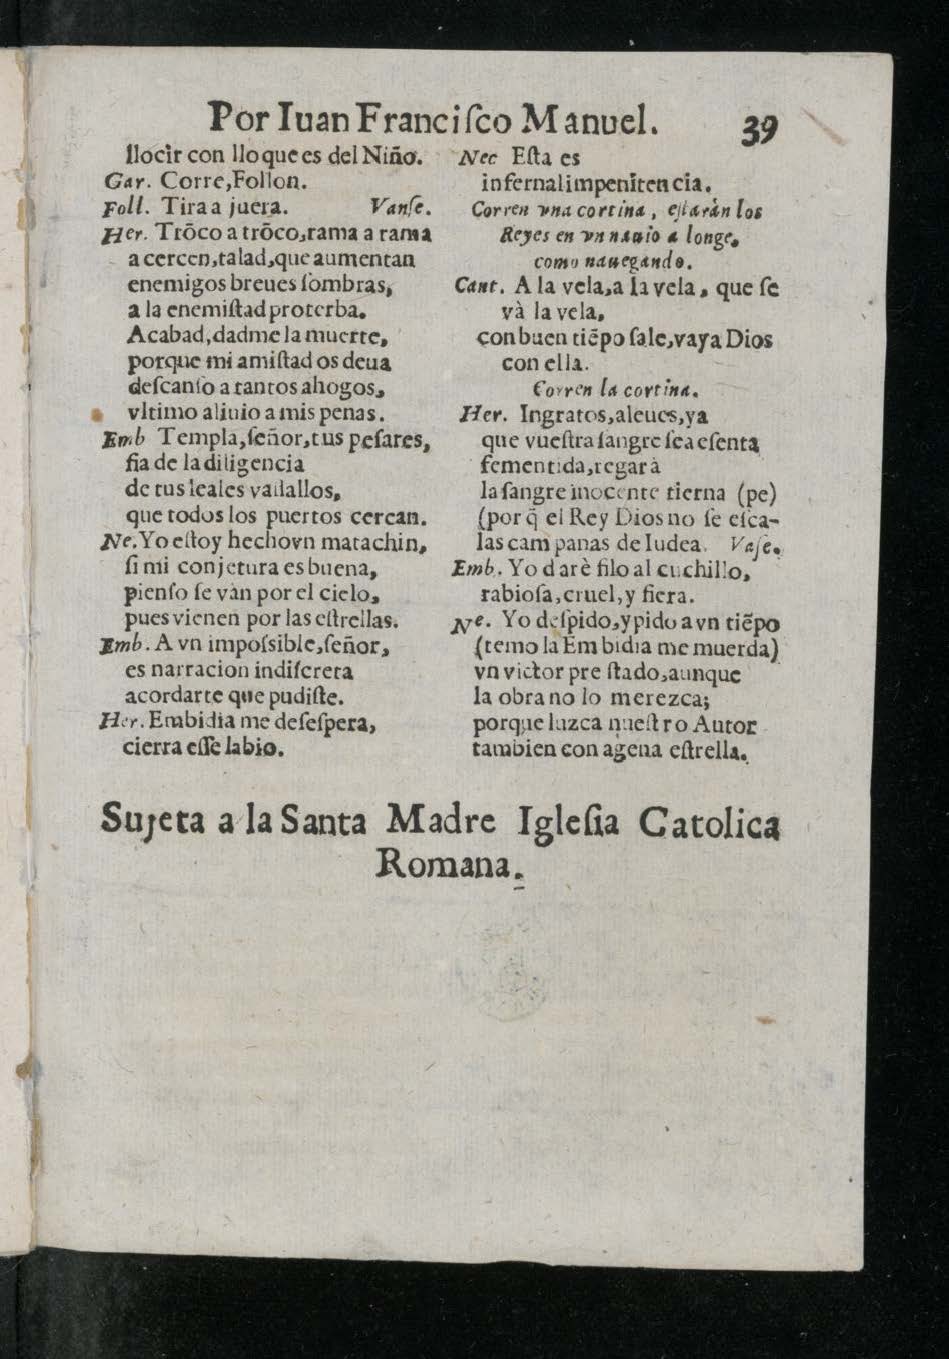 Por Iuan Franciſco Manuel. 39
llocir con lloque es del Niño.
Gar. Corre, Follon.
Foll. Tira a juera. Vanſe.
Her. Trõco a trõco, rama a rama
a cercen, talad, que aumentan
enemigos breues ſombras,
a la enemiſtad proterba.
Acabad, dadme la muerte,
porque mi amiſtad os deua
deſcanſo a tantos ahogos,
vltimo aliuio a mis penas.
Emb Templa, ſeñor, tus peſares,
fia de la diligencia
de tus leales vaſſallos,
que todos los puertos cercan.
Ne. Yo eſtoy hecho vn matachin,
ſi mi conjetura es buena,
pienſo ſe vàn por el cielo,
pues vienen por las eſtrellas.
Emb. A vn impoſsible, ſeñor,
es narracion indiſcreta
acordarte que pudiſte.
Her. Embidia me deſeſpera,
cierra eſſe labio.
Nec Eſta es
infernal impenitencia.
Corren vna cortina, eſtaràn los
Reyes en vn nauio a longe,
como nauegando.
Cant. A la vela, a la vela, que ſe
và la vela,
con buen tiẽpo ſale, vaya Dios
con ella.
Corren la cortina.
Her. Ingratos, aleues, ya
que vueſtra ſangre ſea eſenta
fementida, regarà
la ſangre inocente tierna (pe)
(por q̃ el Rey Dios no ſe eſca-
las campanas de Iudea. Vaſe.
Emb. Yo darè filo al cuchillo,
rabioſa, cruel, y fiera.
Ne. Yo deſpido, y pido a vn tiẽpo
(temo la Embidia me muerda)
vn victor preſtado, aunque
la obra no lo merezca;
porque luzca nueſtro Autor
tambien con agena eſtrella.
Sujeta a la Santa Madre Igleſia Catolica
Romana.